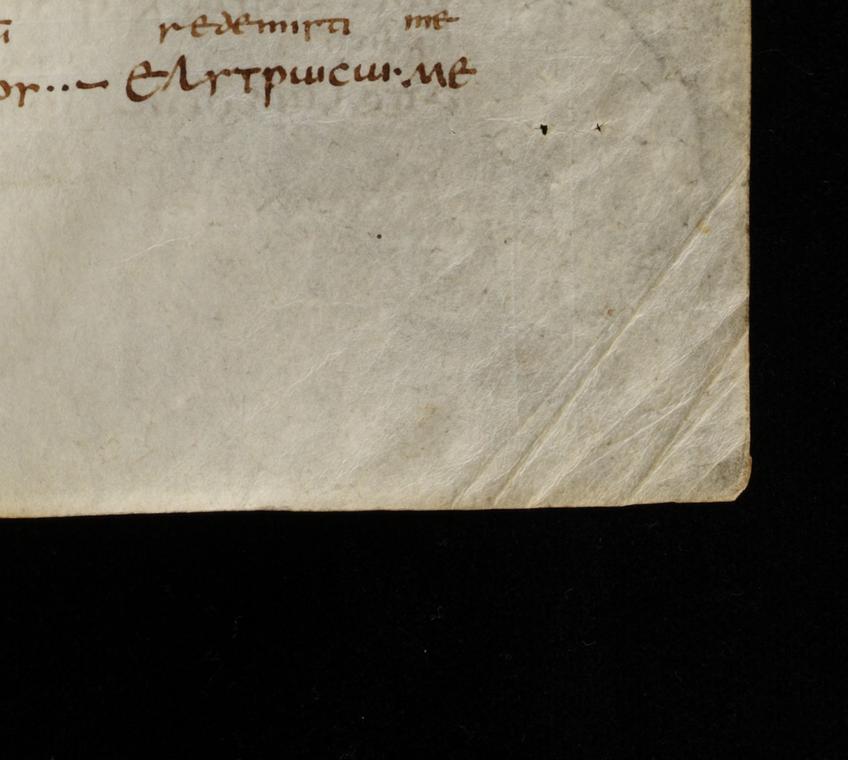 redemisti me
ου..– ЄΛΥΤΡωϹω·ΜЄ